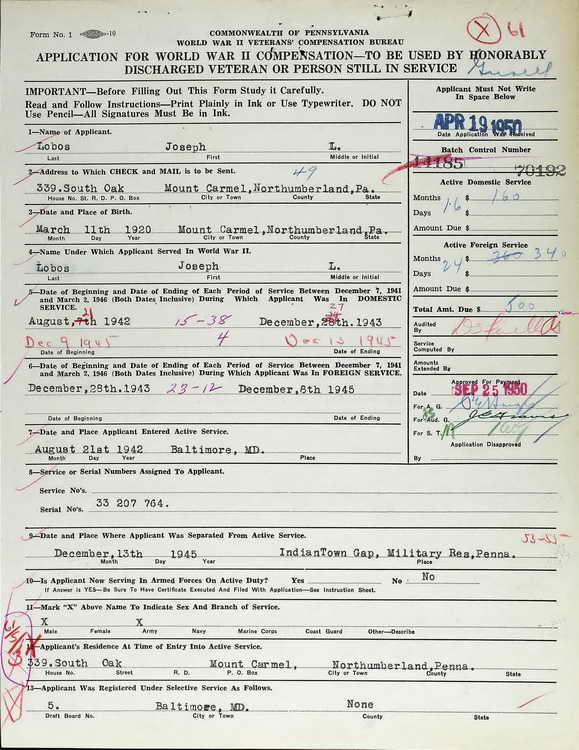 Form No. 1 -10
COMMONWEALTH OF PENNSYLVANIA
WORLD WAR II VETERANS' COMPENSATION BUREAU
X 61
APPLICATION FOR WORLD WAR II COMPENSATION—TO BE USED BY HONORABLY
DISCHARGED VETERAN OR PERSON STILL IN SERVICE
IMPORTANT—Before Filling Out This Form Study it Carefully.
Read and Follow Instructions—Print Plainly in Ink or Use Typewriter. DO NOT
Use Pencil—All Signatures Must Be in Ink.
1—Name of Applicant.
Lobos Joseph L.
Last First Middle or Initial
2—Address to Which CHECK and MAIL is to be Sent. 49
339.South Oak Mount Carmel,Northumberland,Pa.
House No. St. R. D. P. O. Box City or Town County State
3—Date and Place of Birth.
March 11th 1920 Mount Carmel,Northumberland,Pa.
Month Day Year City or Town County State
4—Name Under Which Applicant Served In World War II.
Lobos Joseph L.
Last First Middle or Initial
5—Date of Beginning and Date of Ending of Each Period of Service Between December 7, 1941
and March 2, 1946 (Both Dates Inclusive) During Which Applicant Was In DOMESTIC
SERVICE. 21 27
August, 7th 1942 15-38 December, 28th.1943
Dec 9 1945 4 Dec 13 1945
Date of Beginning Date of Ending
6—Date of Beginning and Date of Ending of Each Period of Service Between December 7, 1941
and March 2, 1946 (Both Dates Inclusive) During Which Applicant Was In FOREIGN SERVICE.
December,28th.1943 23-12 December,8th 1945
Date of Beginning Date of Ending
7—Date and Place Applicant Entered Active Service.
August 21st 1942 Baltimore, MD.
Month Day Year Place
8—Service or Serial Numbers Assigned To Applicant.
Service No's.
Serial No's. 33 207 764.
9—Date and Place Where Applicant Was Separated From Active Service. 53-55
December,13th 1945 IndianTown Gap, Military Res,Penna.
Month Day Year Place
10—Is Applicant Now Serving In Armed Forces On Active Duty? Yes No No
If Answer is YES—Be Sure To Have Certificate Executed And Filed With Application—See Instruction Sheet.
11—Mark "X" Above Name To Indicate Sex And Branch of Service.
X X
Male Female Army Navy Marine Corps Coast Guard Other—Describe
12—Applicant's Residence At Time of Entry Into Active Service.
339.South Oak Mount Carmel, Northumberland,Penna.
House No. Street R. D. P. O. Box City or Town County State
13—Applicant Was Registered Under Selective Service As Follows.
5. Baltimore, MD. None
Draft Board No. City or Town County State
Applicant Must Not Write
In Space Below
APR 19 1950
Date Application Was Received
Batch Control Number
14185 70192
Active Domestic Service
Months 16 $ 160
Days $
Amount Due $
Active Foreign Service
Months 24 $ 360 340
Days $
Amount Due $
Total Amt. Due $ 500
Audited
By
Service
Computed By
Amounts
Extended By
Approved For Payment
Date SEP 25 1950
For A. G.
For Aud. G.
For S. T.
Application Disapproved
By